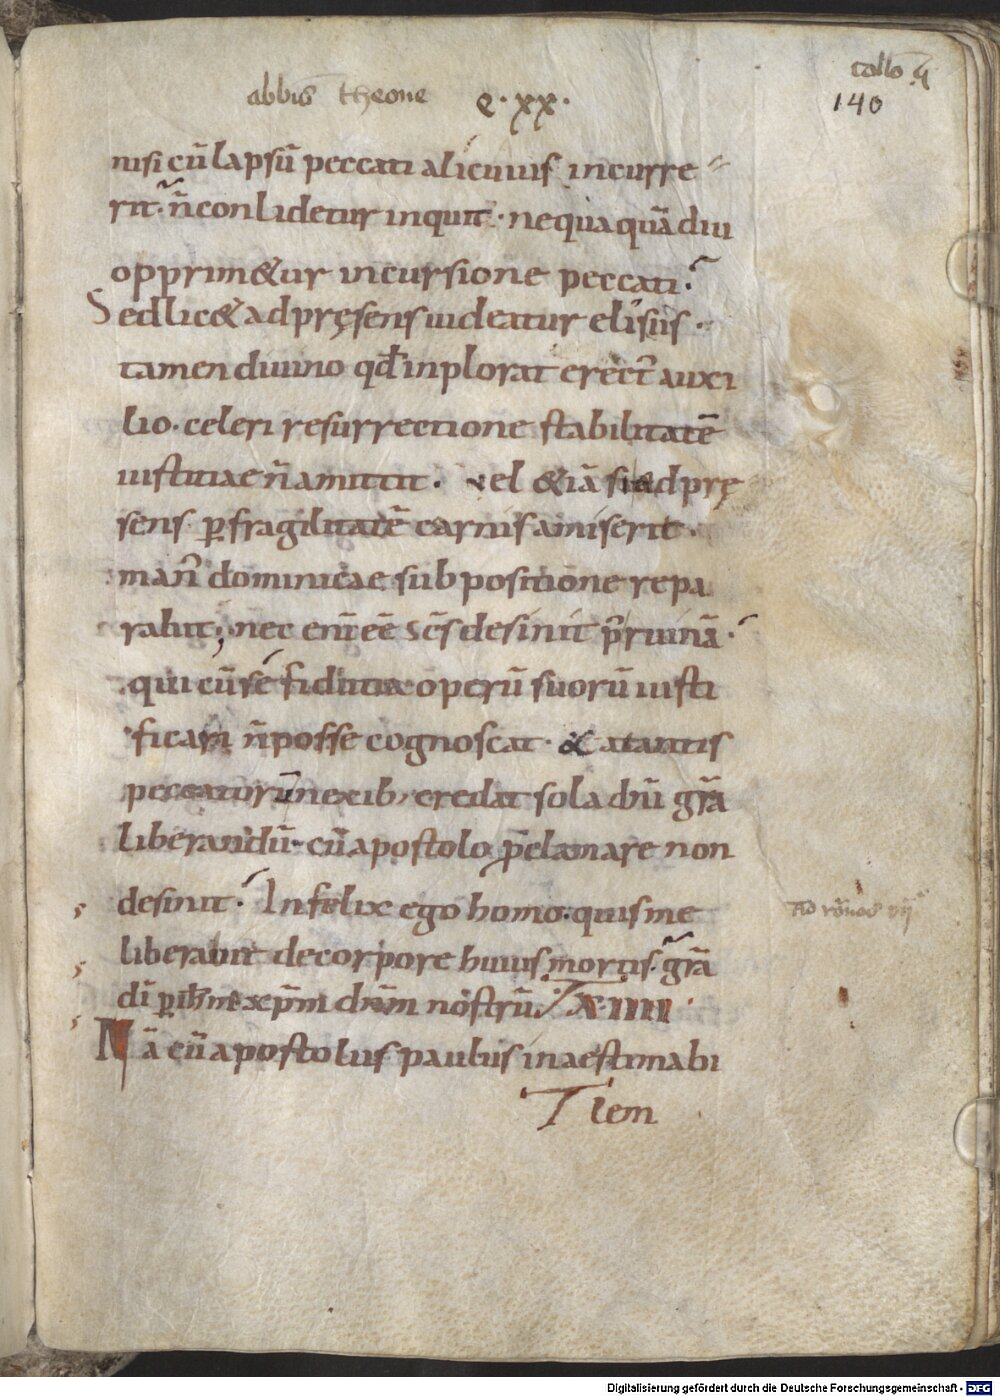 collo
140
abbis theone e·xx·
nisi cū lapsū peccati alicuius incurre
rit. n̄ conlidetur inquit· nequaquā diu
opprim&ur incursione peccati.
Sed lic& ad pręsens uideatur elisus·
tamen diuino qđ inplorat erect̄ auxi
lio· celeri resurrectione stabilitatē
iustitiae n̄ amittit· vel &iā si ad prę
sens ꝑ fragilitatē carnis amiserit·
man̄ dominicae subpositione repa
rabit; nec eni ēē sc̄s desinit p̄ ruinā·
qui cū sē fiducia operū suorū iusti
ficari n̄ posse cognoscat· & a tantis
peccatorū nexib; credat sola dn̄i grā
liberandū· cū apostolo p̄clamare non
desinit· Infelix ego homo· quis me
liberabit de corpore huius mortis· grā
di ꝑ ih̄m xp̄m dn̄m nostrū· X·IIII·
Nā cū apostolus paulus inaestimabi
lem
ad romanos vii
Digitalisierung gefördert durch die Deutsche Forschungsgemeinschaft - DFG